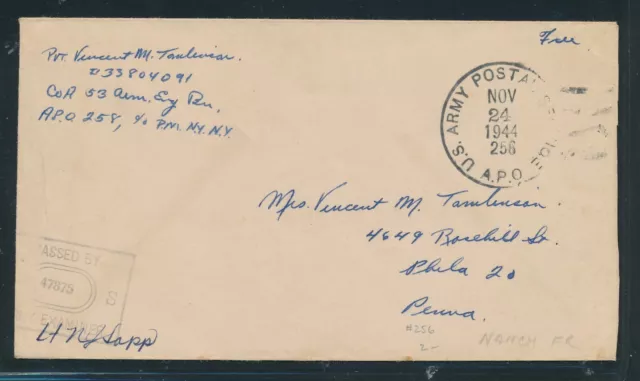 Pvt. Vincent M. Tomlinson
#33804091
Co A 53 Arm. Eng Bn.
A.P.O. 258, c/o P.M. N.Y. N.Y.
Free
U.S. ARMY POSTAL SERVICE
NOV
24
1944
256
A.P.O.
Mrs. Vincent M. Tomlinson
4649 Rosehill St.
Phila 20
Penna.
PASSED BY
47875
S
EXAMINER
#256
2-
NANCY FR